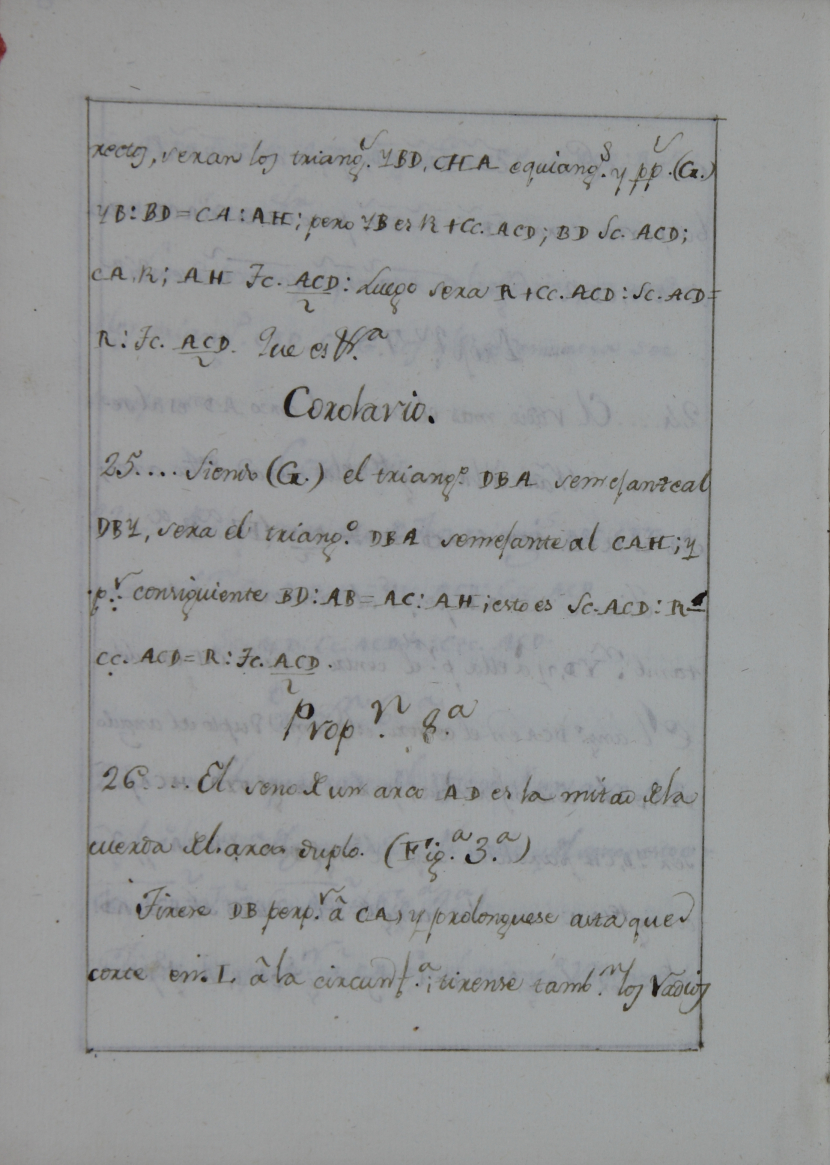 rectos, seran los triang.ˢ YBD, CHA equiang.ˢ y pp.ˢ (G.)
YB: BD = CA: AH; pero YB es R + Cc. ACD; BD Sc. ACD;
CA, R; AH Tc. ACD/2: Luego sera R + Cc. ACD: Sc. ACD =
R: Tc. ACD/2. Que es &.ª
Corolario.
25.... Siendo (G.) el triang.º DBA semejante al
DBY, sera el triang.º DBA semejante al CAH; y
p.ʳ consiguiente BD: AB = AC: AH; esto es Sc. ACD: R -
Cc. ACD = R: Tc. ACD/2.
Prop.ⁿ 8.ª
26.... El seno de un arco AD es la mitad de la
cuerda del arco duplo. (Fig.ª 3.ª)
Tirese DB perp.ʳ â CA, y prolonguese asta que
corte en L â la circunf.ª; tirense tamb.ⁿ los Radios